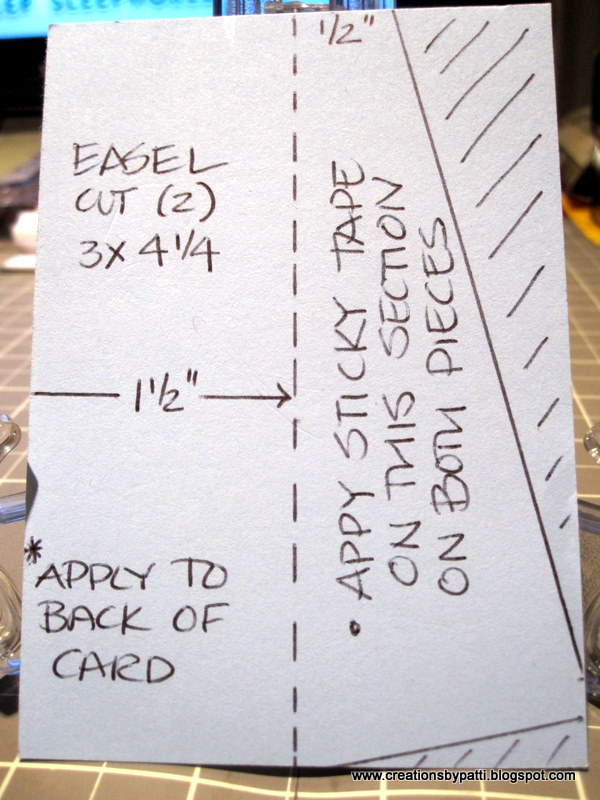 1/2"
EASEL
CUT (2)
3 X 4 1/4
1 1/2"
* APPLY TO
BACK OF
CARD
• APPY STICKY TAPE
ON THIS SECTION
ON BOTH PIECES
www.creationsbypatti.blogspot.com